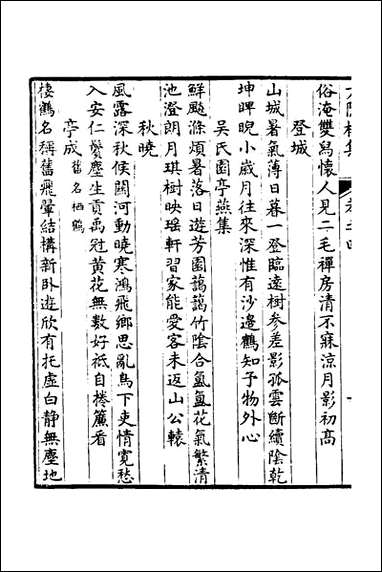 俗淹雙舄懷人見二毛禪房清不寐涼月影初高
登城
山城暑氣薄日暮一登臨遠樹參差影孤雲斷續陰乾
坤睥睨小歲月往來深惟有沙邊鶴知予物外心
吳氏園亭燕集
鮮飈滌煩暑落日遊芳園藹藹竹陰合氳氳花氣繁清
池澄朗月琪樹映瑤軒習家能愛客未返山公轅
秋曉
風露深秋候關河動曉寒鴻飛鄉思亂鳥下吏情寬愁
入安仁鬢塵生貢禹冠黃花無數好祇自捲簾看
亭成舊名栖鶴
棲鶴名稱舊飛翬結構新卧遊欣有托虛白靜無塵地